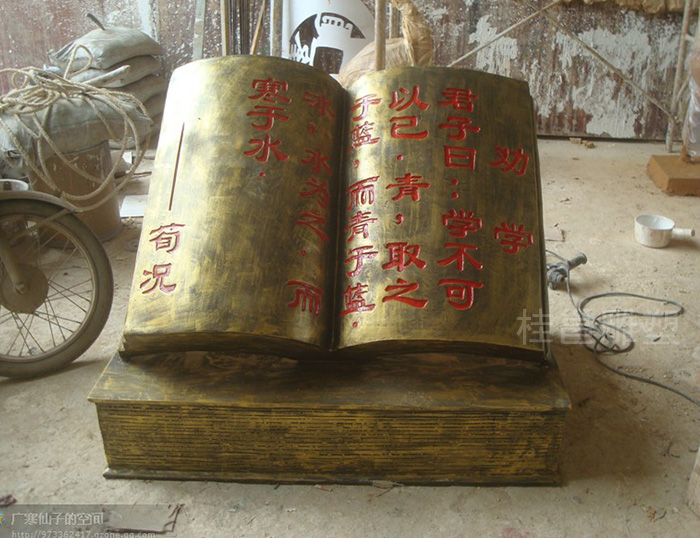 劝学
君子曰:学不可
以已.青,取之
于蓝,而青于蓝.
冰,水为之,而
寒于水.
——荀况
广寒仙子的空间
http://973362417.qzone.qq.com/